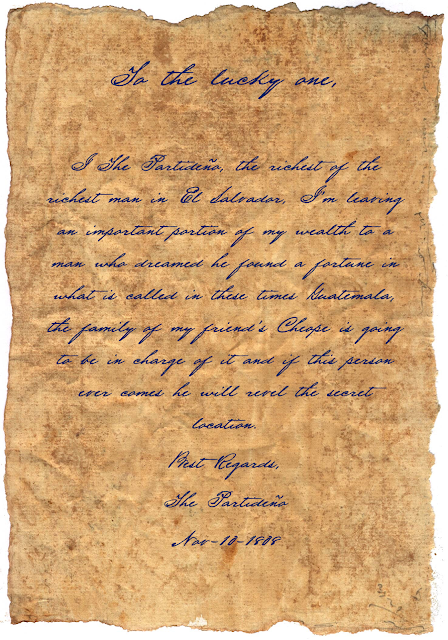 To the lucky one,
I The Partideño, the richest of the
richest man in El Salvador, I'm leaving
an important portion of my wealth to a
man who dreamed he found a fortune in
what is called in these times Guatemala,
the family of my friend's Cheope is going
to be in charge of it and if this person
ever comes he will revel the secret
location.
Best Regards,
The Partideño
Nov-10-1808